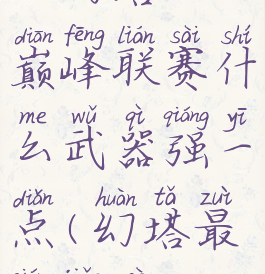 diān fēng lián sài shí
巅峰联赛什
me wǔ qì qiáng yī
么武器强一
diǎn huàn tǎ zuì
点(幻塔最